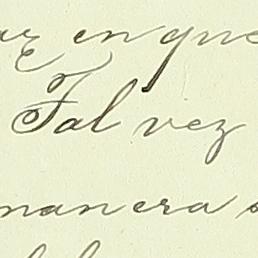 en que
Tal vez
manera